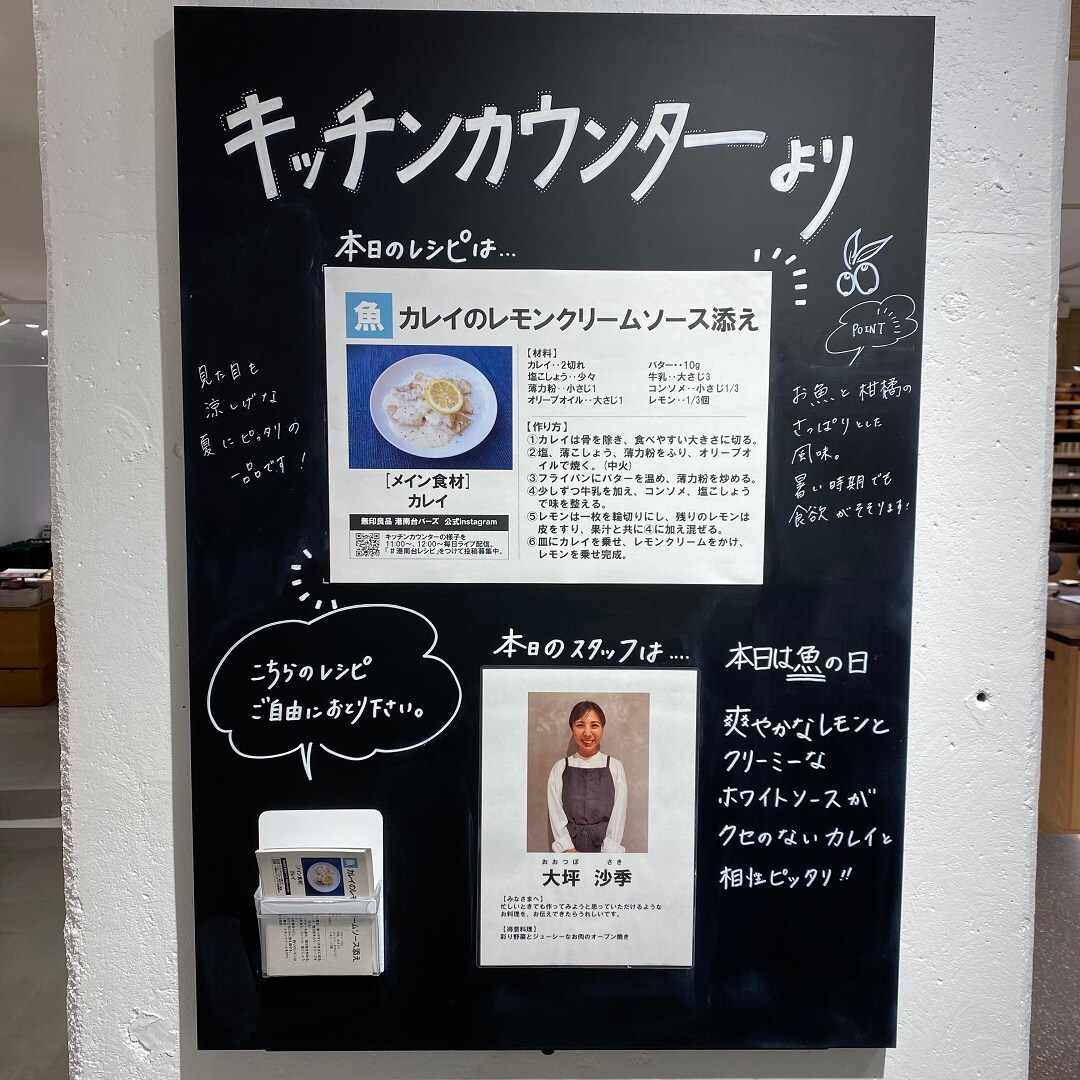 キッチンカウンターより
本日のレシピは…
魚 カレイのレモンクリームソース添え
【材料】
カレイ‥2切れ
塩こしょう‥少々
薄力粉‥小さじ1
オリーブオイル‥大さじ1
バター‥10g
牛乳‥大さじ3
コンソメ‥小さじ1/3
レモン‥1/3個
【作り方】
①カレイは骨を除き、食べやすい大きさに切る。
②塩、薄こしょう、薄力粉をふり、オリーブオ
イルで焼く。(中火)
③フライパンにバターを温め、薄力粉を炒める。
④少しずつ牛乳を加え、コンソメ、塩こしょう
で味を整える。
⑤レモンは一枚を輪切りにし、残りのレモンは
皮をすり、果汁と共に④に加え混ぜる。
⑥皿にカレイを乗せ、レモンクリームをかけ、
レモンを乗せ完成。
[メイン食材]
カレイ
無印良品 港南台バーズ 公式Instagram
キッチンカウンターの様子を
11:00～、12:00～毎日ライブ配信。
「＃港南台レシピ」をつけて投稿募集中。
見た目も
涼しげな
夏にピッタリの
一品です！
POINT
お魚と柑橘の
さっぱりとした
風味。
暑い時期でも
食欲がそそります!
こちらのレシピ
ご自由におとり下さい。
本日のスタッフは….
おおつぼ さき
大坪 沙季
【みなさまへ】
忙しいときでも作ってみようと思っていただけるような
お料理を、お伝えできたらうれしいです。
【得意料理】
彩り野菜とジューシーなお肉のオーブン焼き
本日は魚の日
爽やかなレモンと
クリーミーな
ホワイトソースが
クセのないカレイと
相性ピッタリ!!
魚 カレイのレモンクリームソース添え